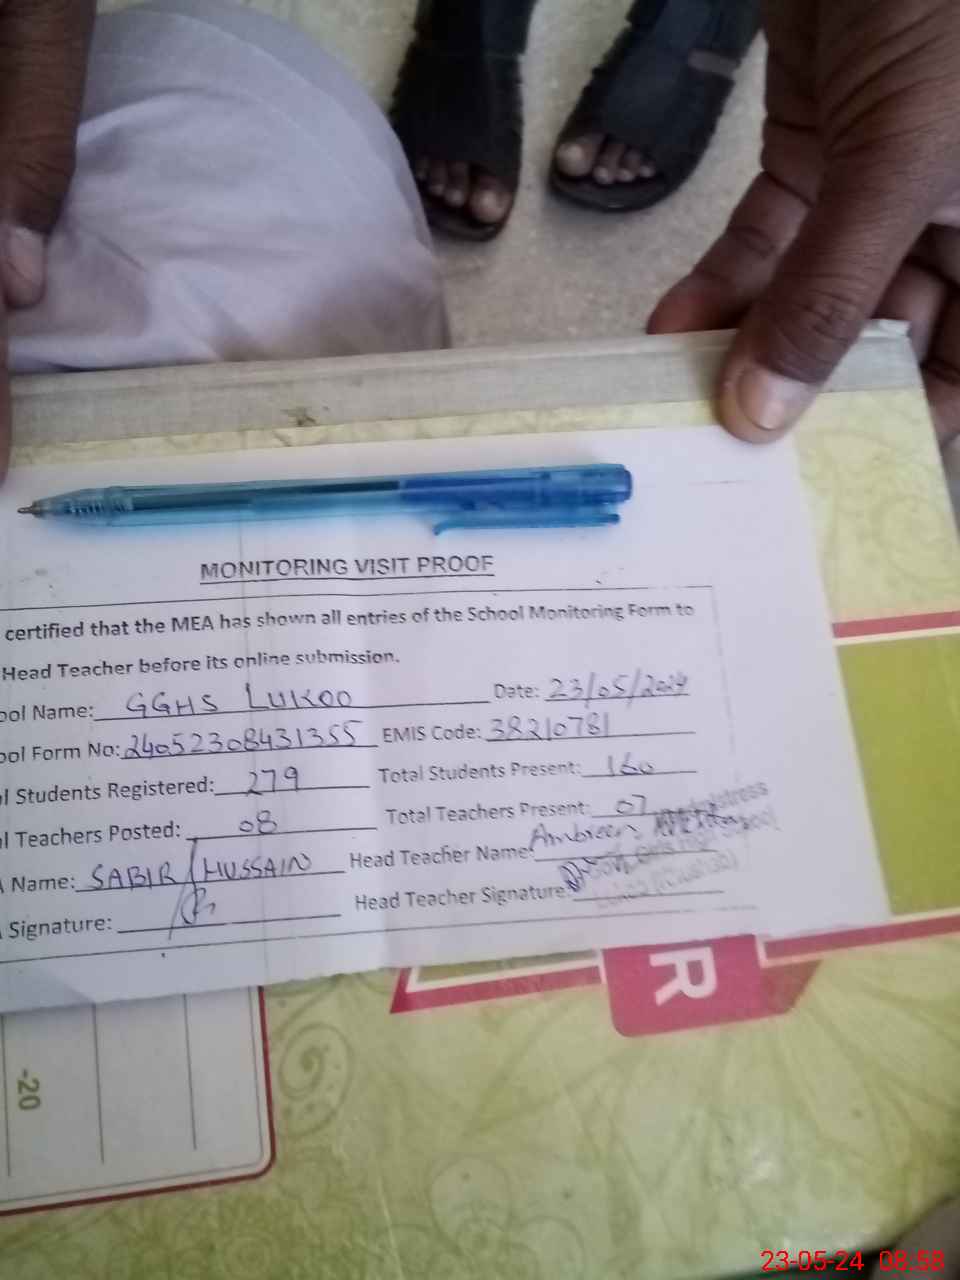 MONITORING VISIT PROOF
certified that the MEA has shown all entries of the School Monitoring Form to
Head Teacher before its online submission.
ool Name: GGHS LUKOO Date: 23/05/2024
ool Form No: 24052308431355 EMIS Code: 38210781
l Students Registered: 279 Total Students Present: 160
l Teachers Posted: 08 Total Teachers Present: 07
Name: SABIR HUSSAIN Head Teacher Name: Ambreen
Signature: Head Teacher Signature:
R
-20
23-05-24 08:58